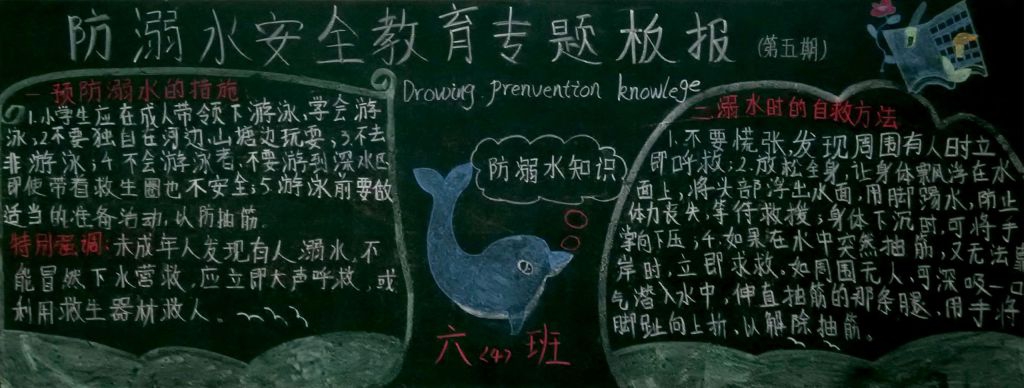 防溺水安全教育专题板报(第五期)
Drowing prenvention knowlege
一 预防溺水的措施
1.小学生应在成人带领下游泳,学会游
泳;2不要独自在河边,山塘边玩耍;3不去
非游泳;4不会游泳者,不要游到深水区
即使带着救生圈也不安全;5游泳前要做
适当的准备活动,以防抽筋.
特别强调:未成年人发现有人溺水,不
能冒然下水营救,应立即大声呼救,或
利用救生器材救人.
防溺水知识
六(4)班
二.溺水时的自救方法
1.不要慌张,发现周围有人时立
即呼救;2.放松全身,让身体飘浮在水
面上,将头部浮出水面,用脚踢水,防止
体力丧失,等待救援;身体下沉时,可将手
掌向下压;4.如果在水中突然抽筋,又无法靠
岸时,立即求救.如周围无人,可深吸一口
气潜入水中,伸直抽筋的那条腿,用手将
脚趾向上扳,以解除抽筋.